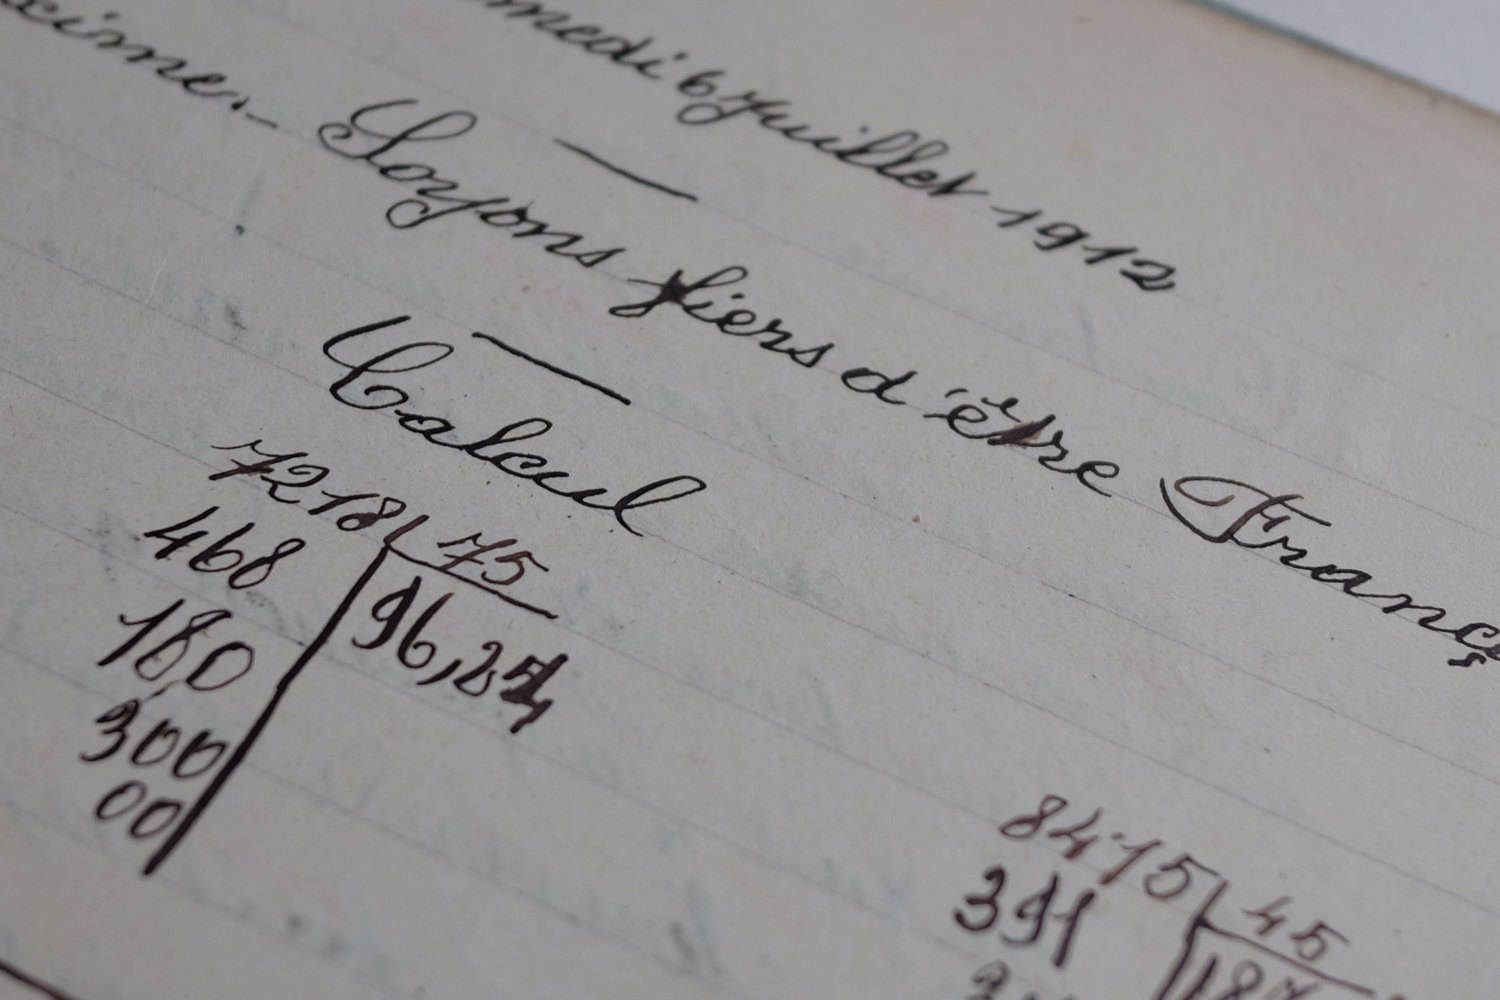 medi 6 Juillet 1912
xime. - Soyons fiers d'être Franç
Calcul
7218 75
468 96,24
180
300
00
8415 45
391 187